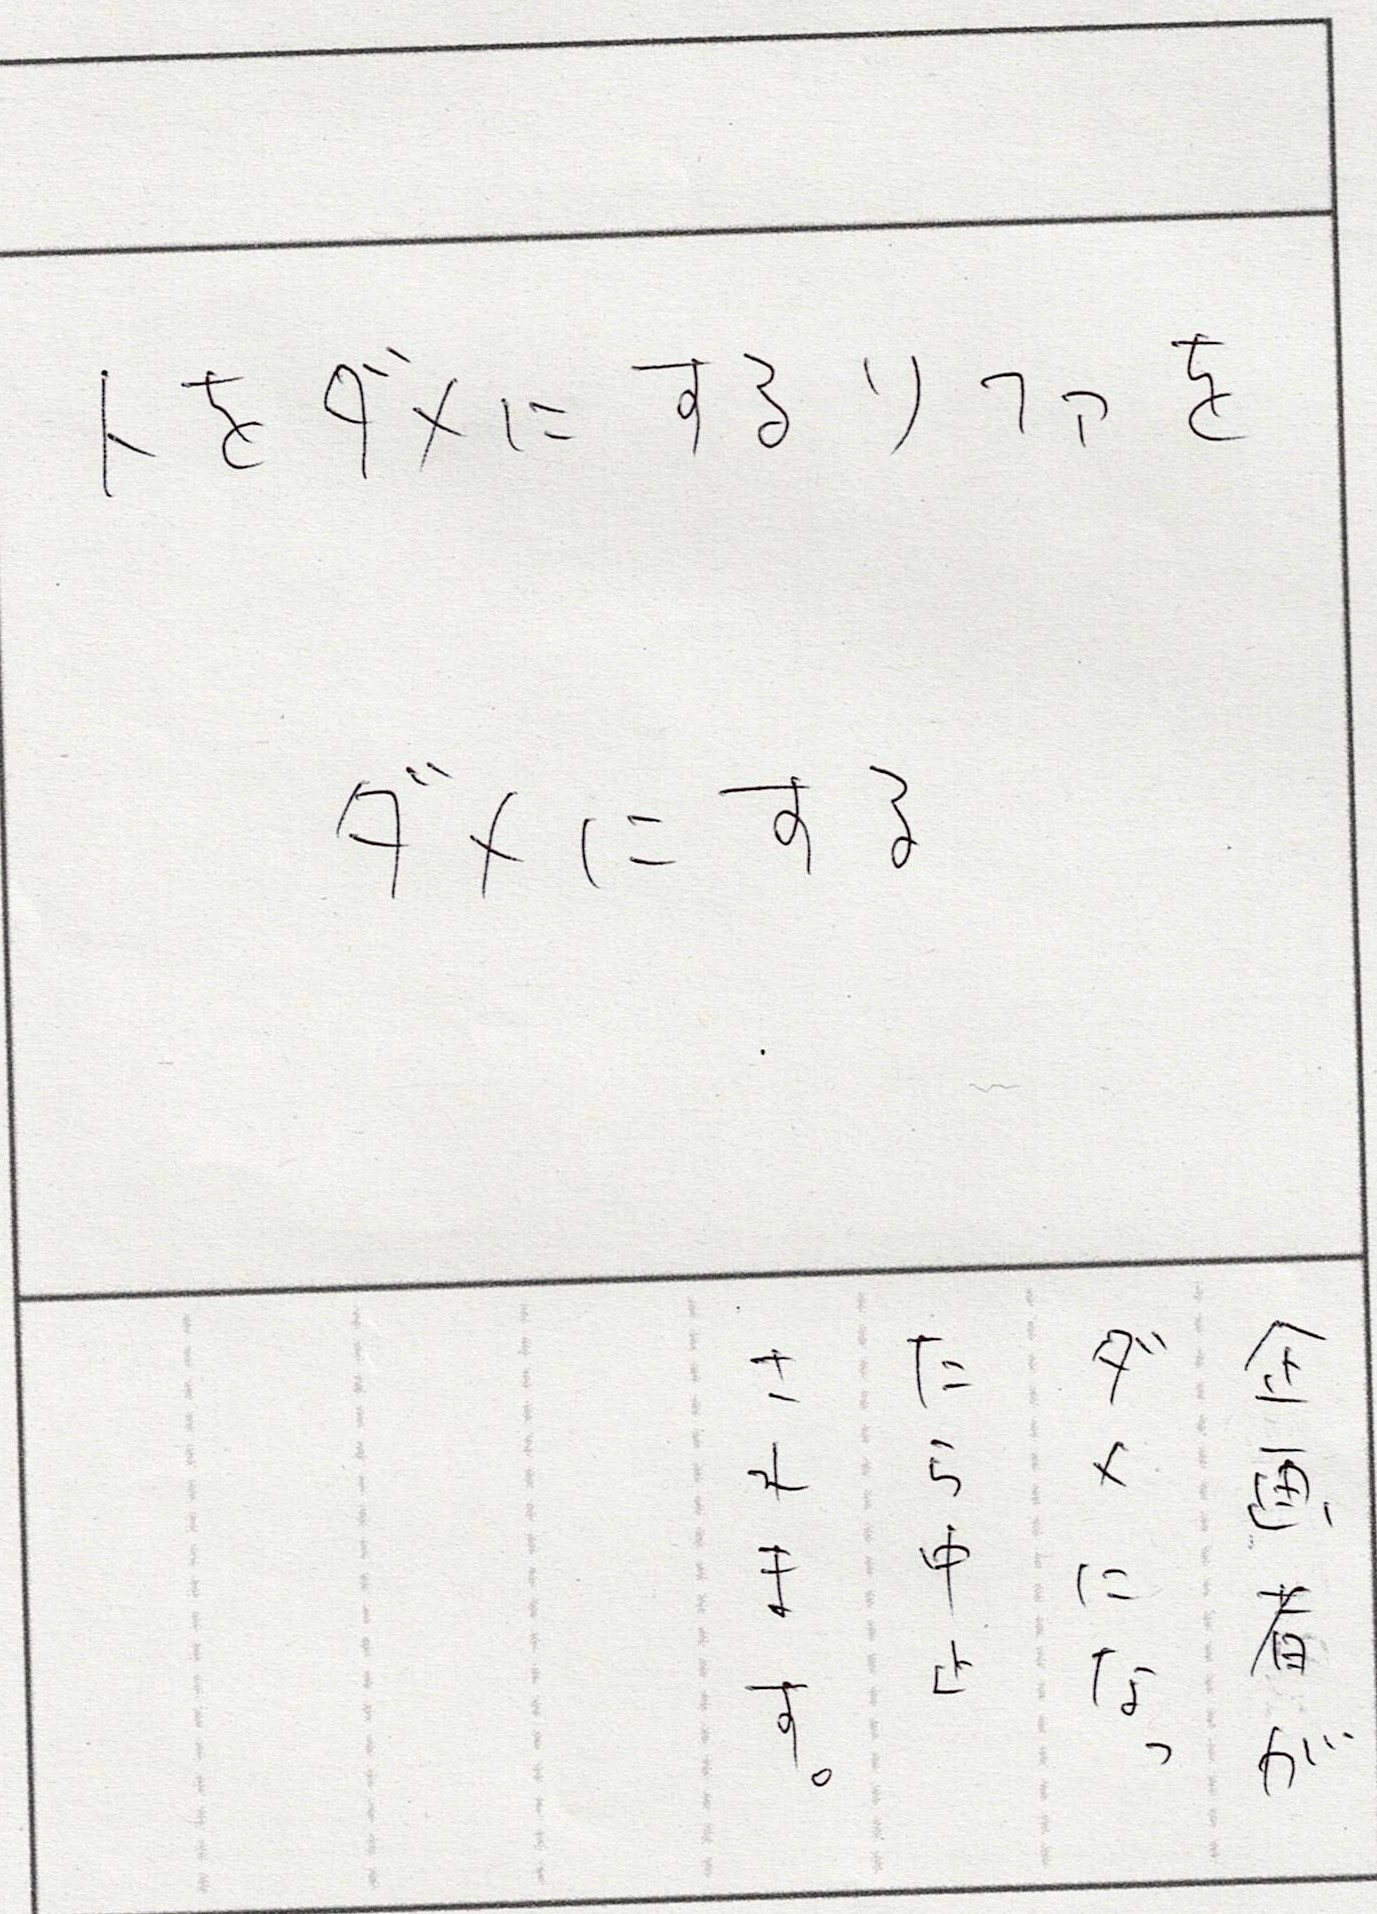 トをダメにするリファを
ダメにする
企画者が
ダメになっ
たら中止
されます。